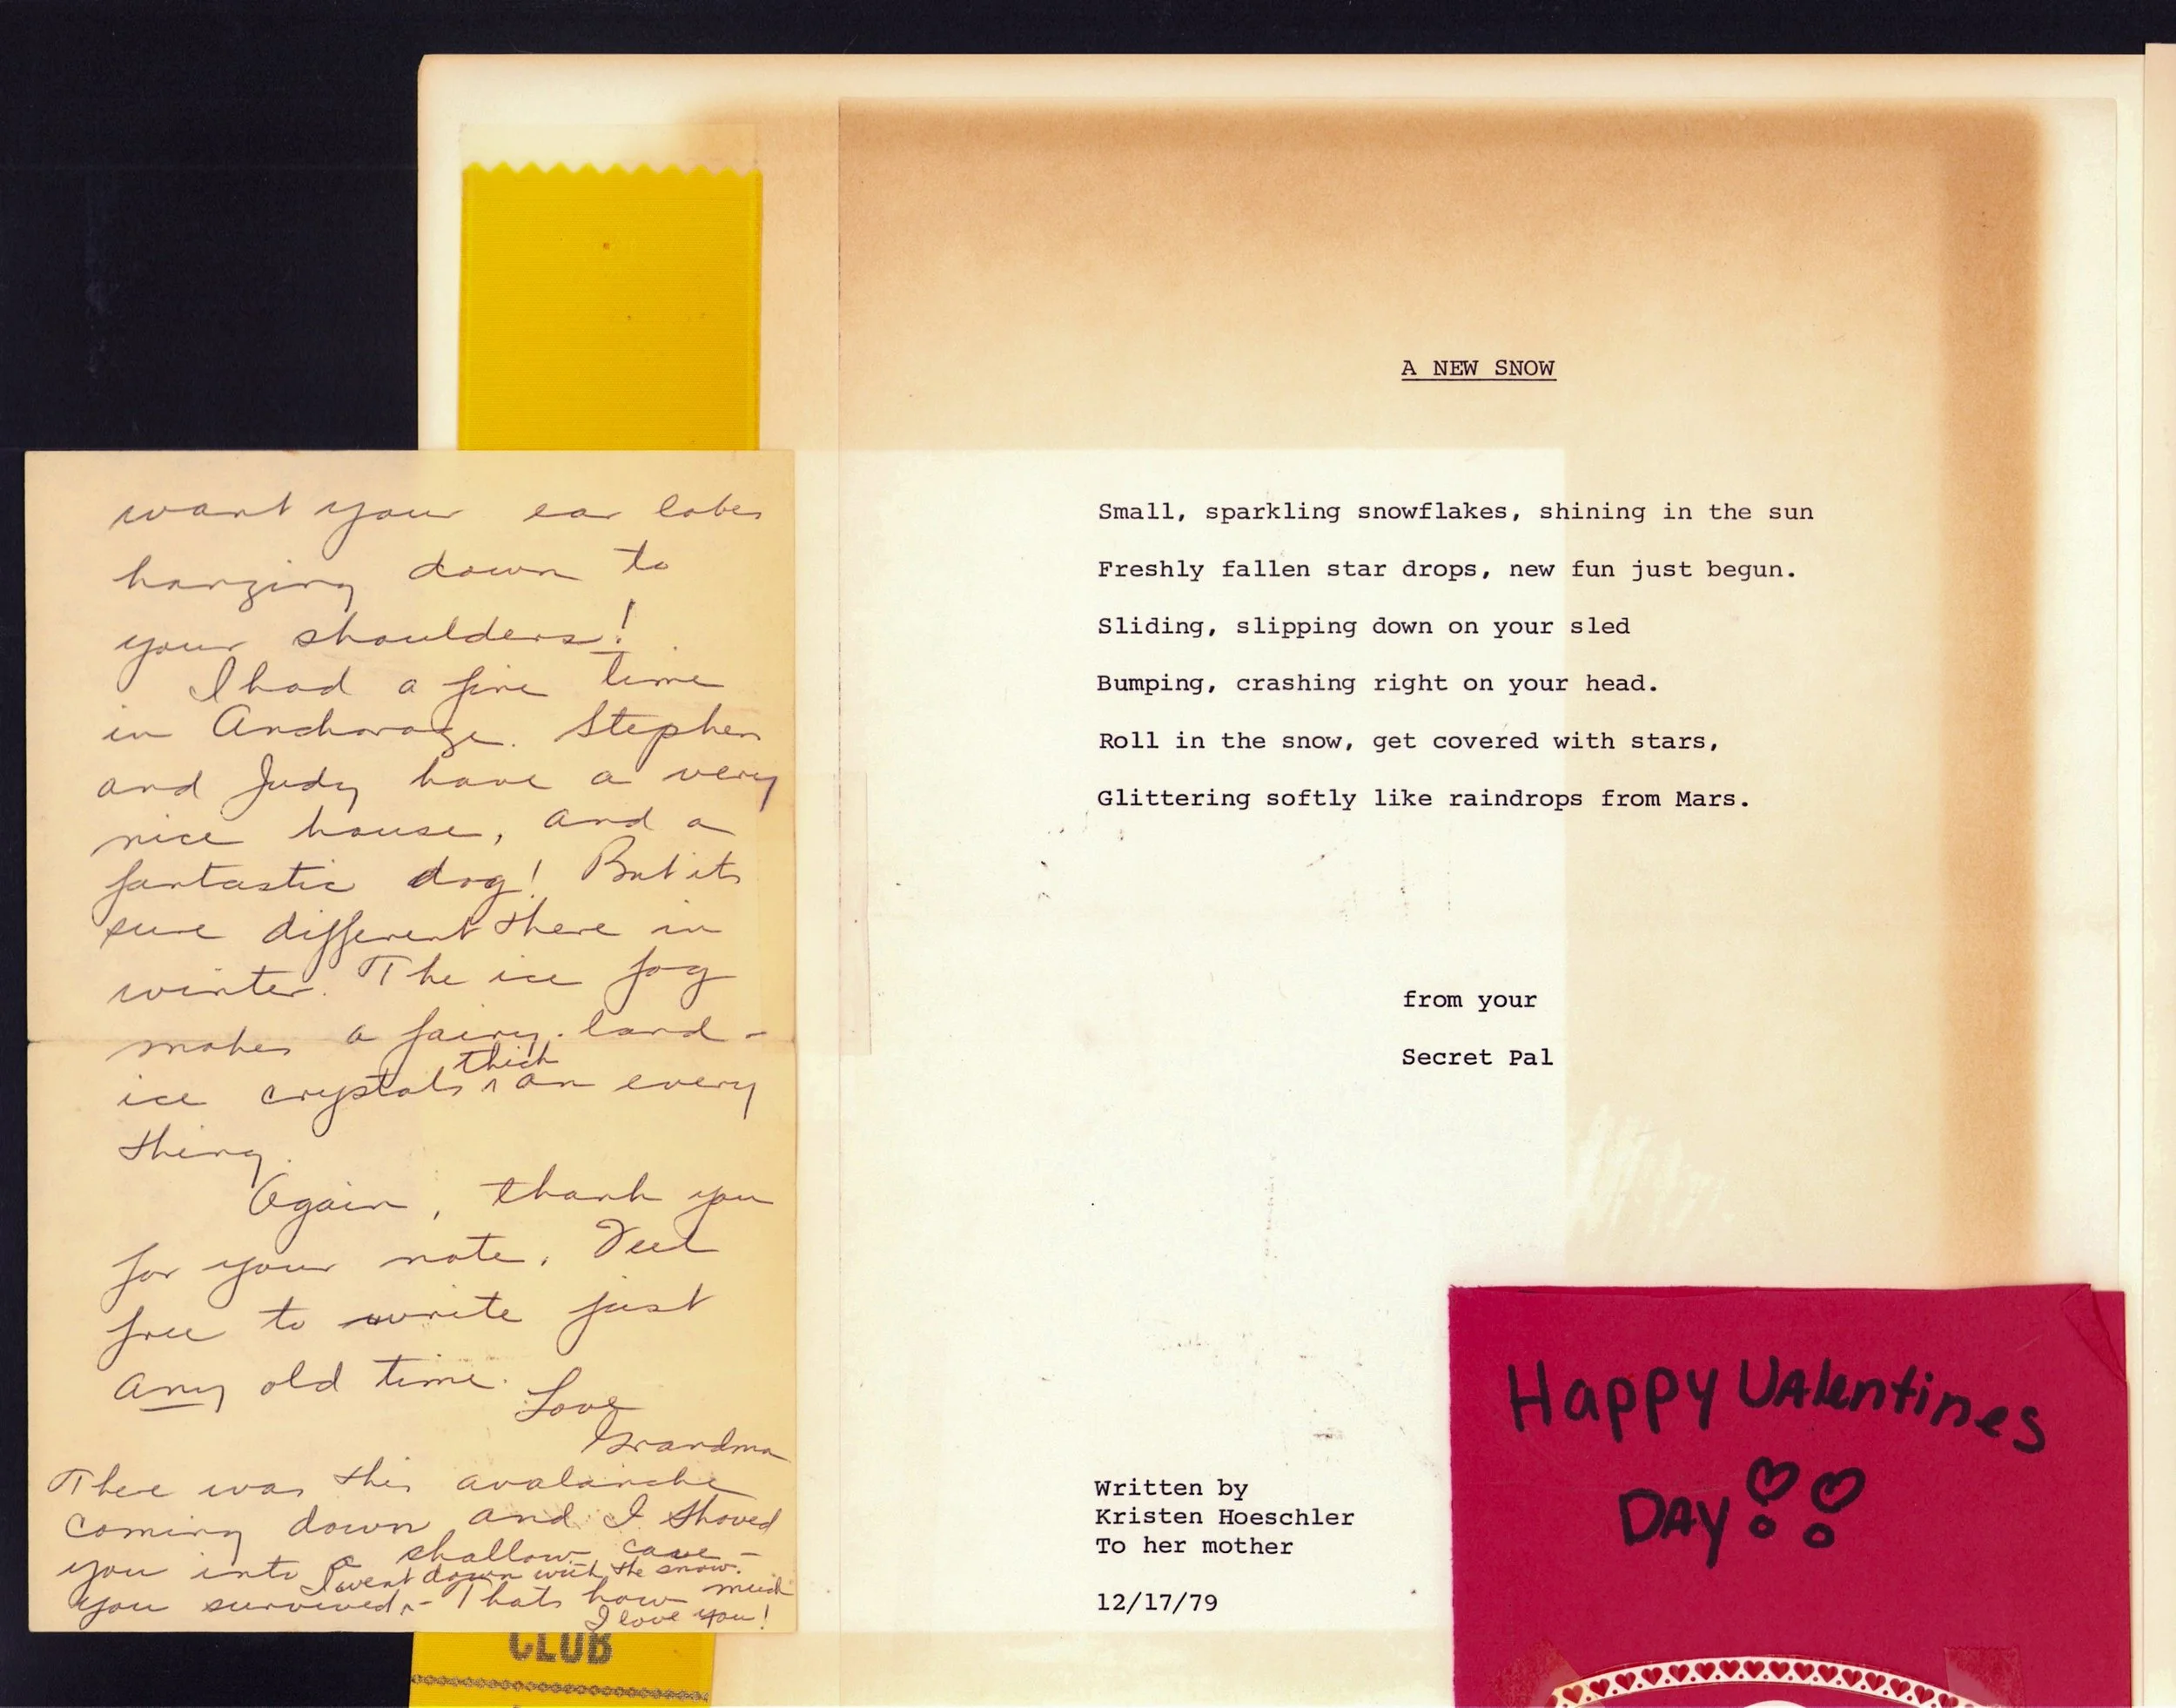 want your ear lobes
hanging down to
your shoulders!
I had a fine time
in Anchorage. Stephen
and Judy have a very
nice house, and a
fantastic dog! But its
sure different there in
winter. The ice fog
makes a fairy-land -
ice crystals thick on every
thing.
Again, thank you
for your note. Feel
free to write just
any old time.
Love
Grandma
There was this avalanche
coming down and I shoved
you into a shallow cave -
I went down with the snow.
you survived - Thats how much
I love you!
CLUB
A NEW SNOW
Small, sparkling snowflakes, shining in the sun
Freshly fallen star drops, new fun just begun.
Sliding, slipping down on your sled
Bumping, crashing right on your head.
Roll in the snow, get covered with stars,
Glittering softly like raindrops from Mars.
from your
Secret Pal
Written by
Kristen Hoeschler
To her mother
12/17/79
Happy Valentines
DAY!!